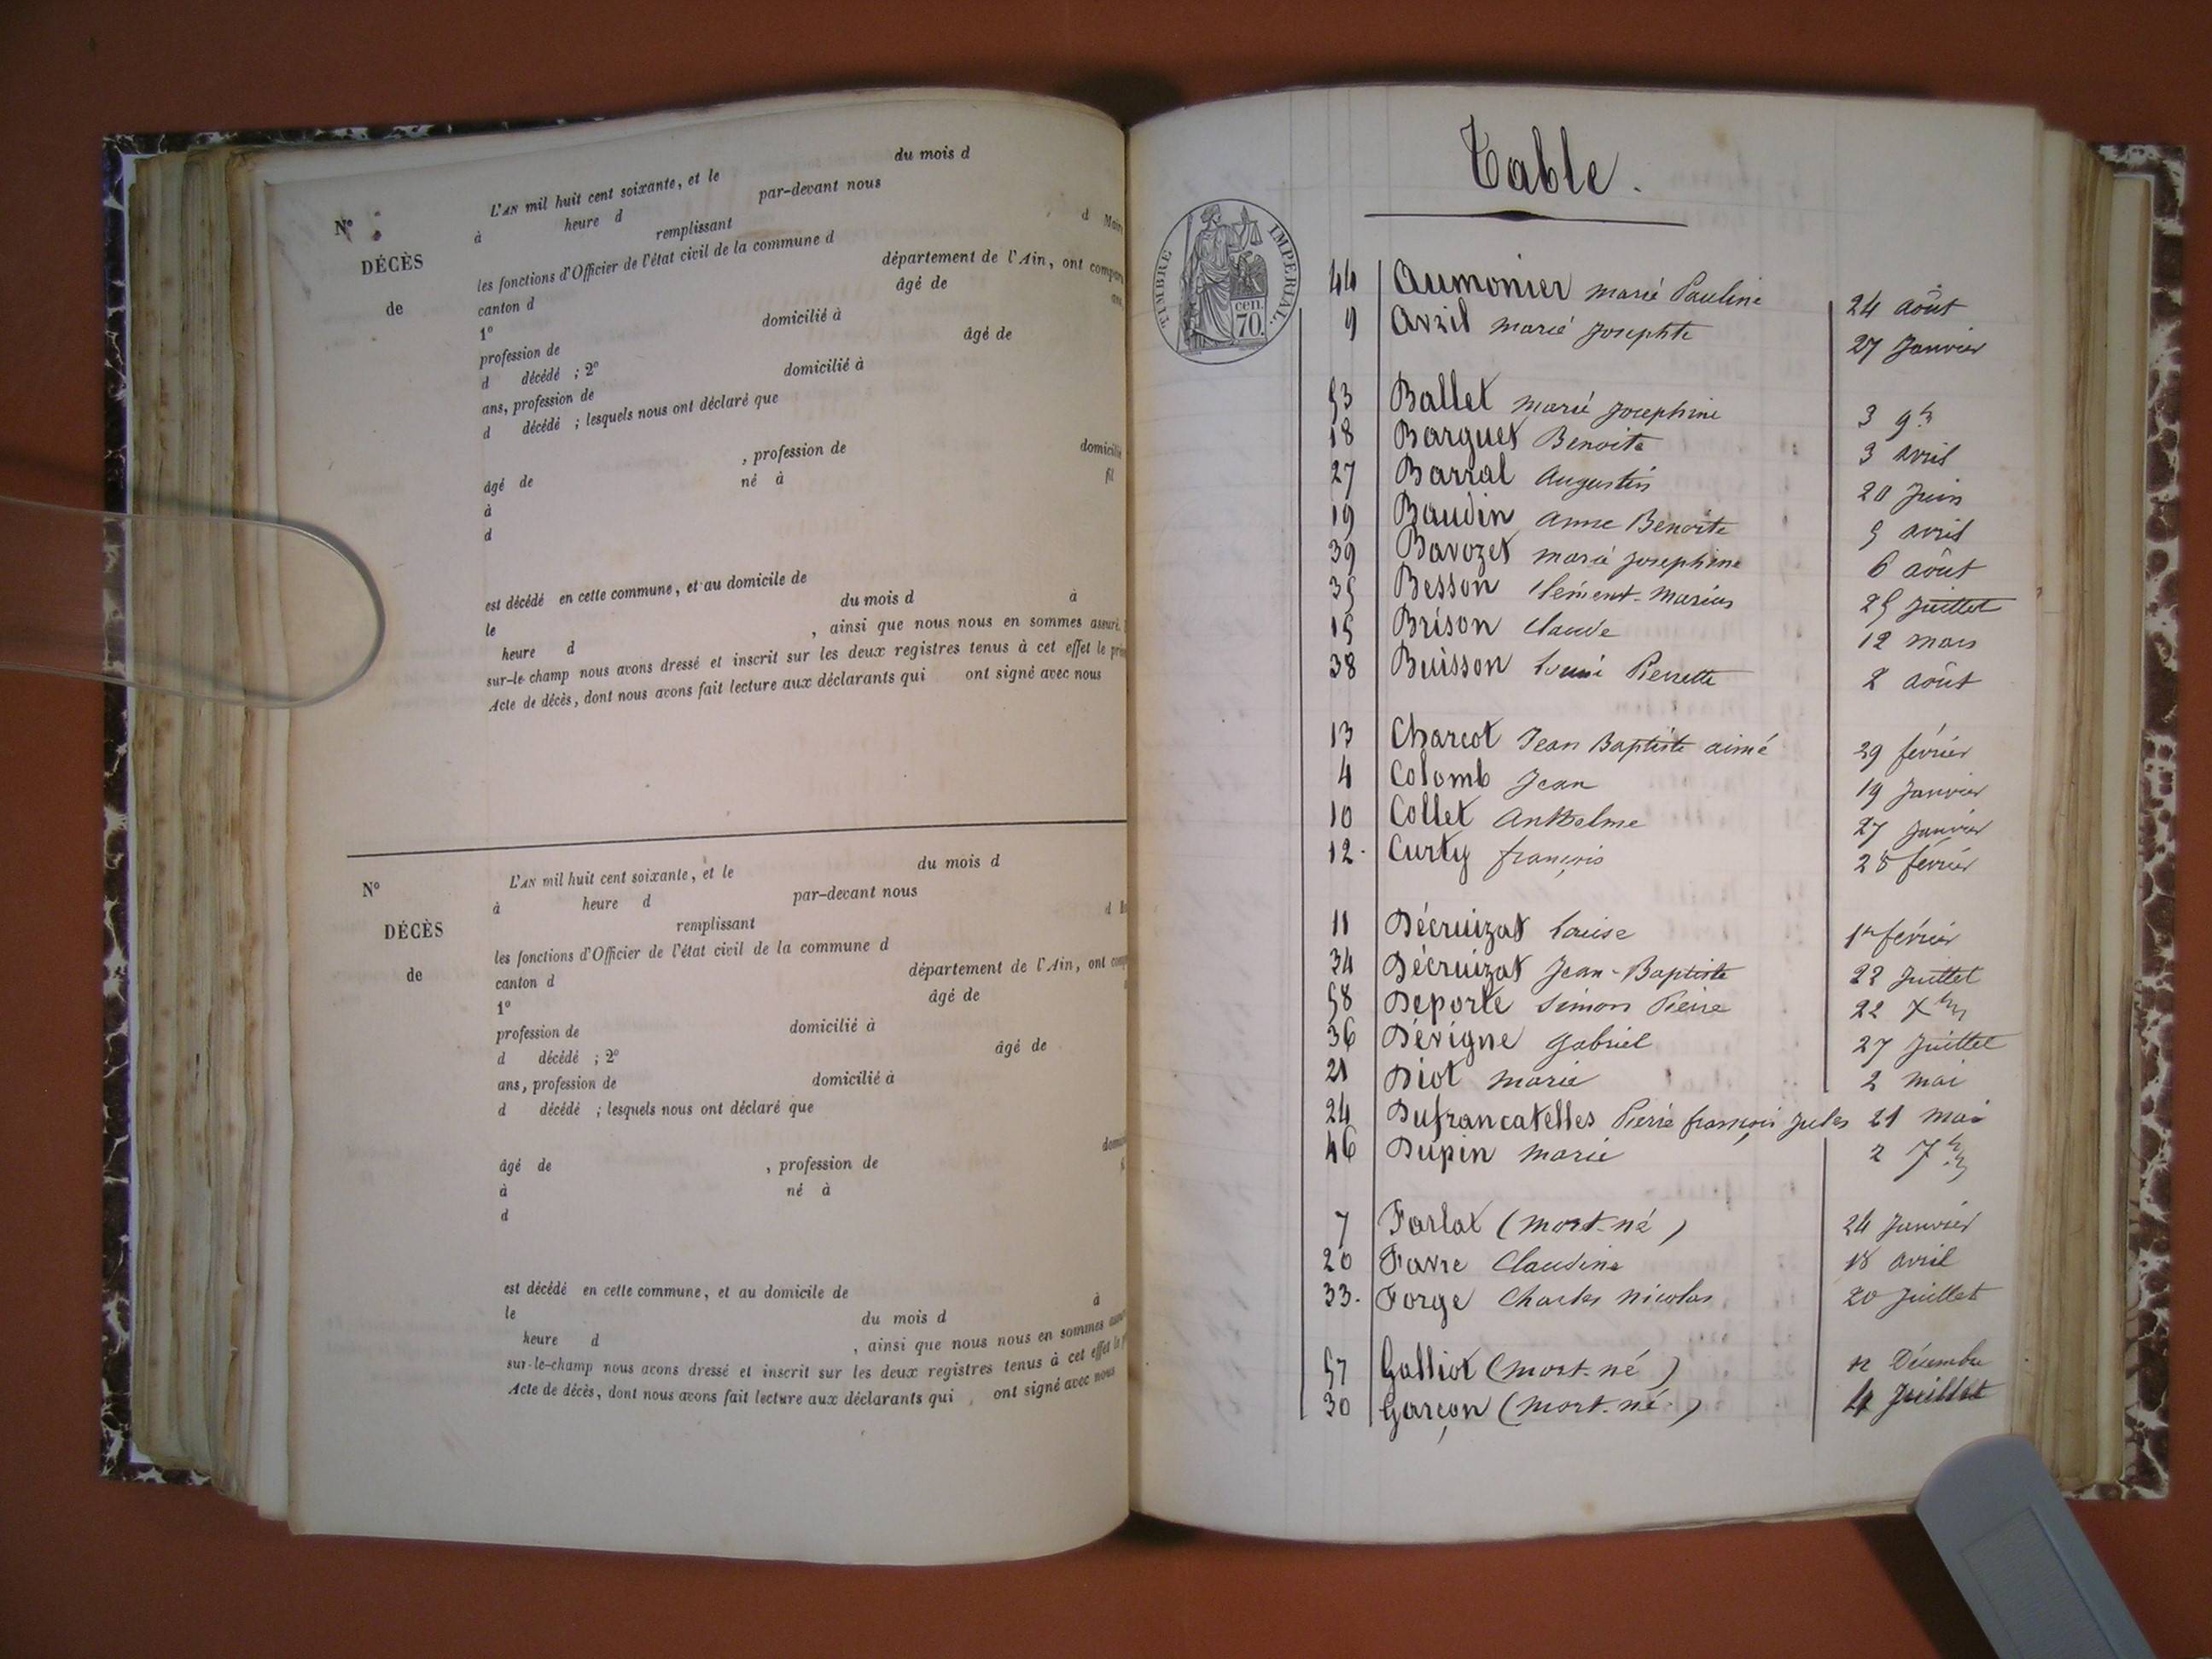 du mois d
L'AN mil huit cent soixante, et le
N°
à heure d par-devant nous
remplissant d Mair
DÉCÈS
les fonctions d'Officier de l'état civil de la commune d
de
canton d département de l'Ain, ont compar
1° âgé de ans,
profession de domicilié à
d décédé ; 2° âgé de
ans, profession de domicilié à
d décédé ; lesquels nous ont déclaré que
, profession de domicilié
âgé de né à fil
à
d
est décédé en cette commune, et au domicile de
le du mois d à
heure d , ainsi que nous nous en sommes assuré.
sur-le champ nous avons dressé et inscrit sur les deux registres tenus à cet effet le
Acte de décès, dont nous avons fait lecture aux déclarants qui ont signé avec nous
L'AN mil huit cent soixante, et le du mois d
N°
à heure d par-devant nous
remplissant d
DÉCÈS
les fonctions d'Officier de l'état civil de la commune d
de
canton d département de l'Ain, ont
1° âgé de
profession de domicilié à
d décédé ; 2° âgé de
ans, profession de domicilié à
d décédé ; lesquels nous ont déclaré que
âgé de , profession de
à né à
d
est décédé en cette commune, et au domicile de
le du mois d à
heure d , ainsi que nous nous en sommes
sur-le-champ nous avons dressé et inscrit sur les deux registres tenus à cet effet
Acte de décès, dont nous avons fait lecture aux déclarants qui ont signé avec nous
Table.
TIMBRE IMPERIAL.
cen.
70.
44 Aumonier marie Pauline 24 août
9 Avril marie Josephte 27 Janvier
53 Ballet marie Josephine 3 9b
18 Barquet Benoite 3 avril
27 Barral Augustin 20 Juin
19 Baudin anne Benoite 5 avril
39 Bavozet marie Josephine 6 août
35 Besson Clément-Marius 25 Juillet
15 Brison Claude 12 mars
38 Buisson Louise Pierrette 2 août
13 Charcot Jean Baptiste aimé 29 février
4 Colomb Jean 19 Janvier
10 Collet Anthelme 27 Janvier
12. Curty françois 28 février
11 Décruizat Louise 1er février
34 Décruizat Jean-Baptiste 22 Juillet
58 Deporte Simon Pierre 22 Xbre
36 Dévigne Gabriel 27 Juillet
21 Diot marie 2 mai
24 Dufrancatelles Pierre françois Jules 21 mai
46 Dupin Marie 2 7bre
7 Farlat (mort-né) 24 Janvier
20 Favre Claudine 18 avril
33. Forge Charles Nicolas 20 Juillet
57 Galliot (mort-né) 12 Décembre
30 Garçon (mort-né.) 4 Juillet